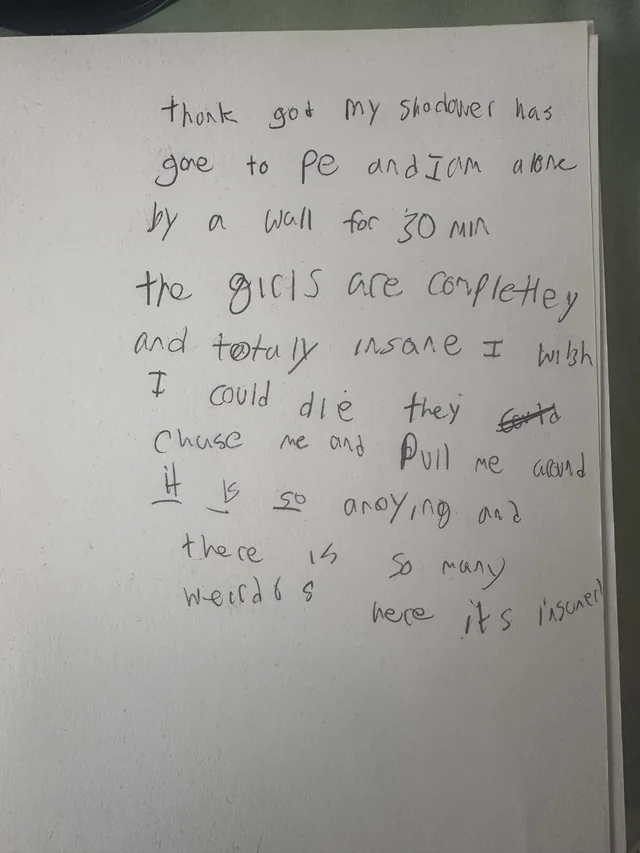 thonk god my shodower has
gone to PE and I am alone
by a wall for 30 min
the girls are complettey
and totaly insane I wish
I could die they could
chase me and pull me around
it is so anoying and
there is so many
weirdos
here it's insane!